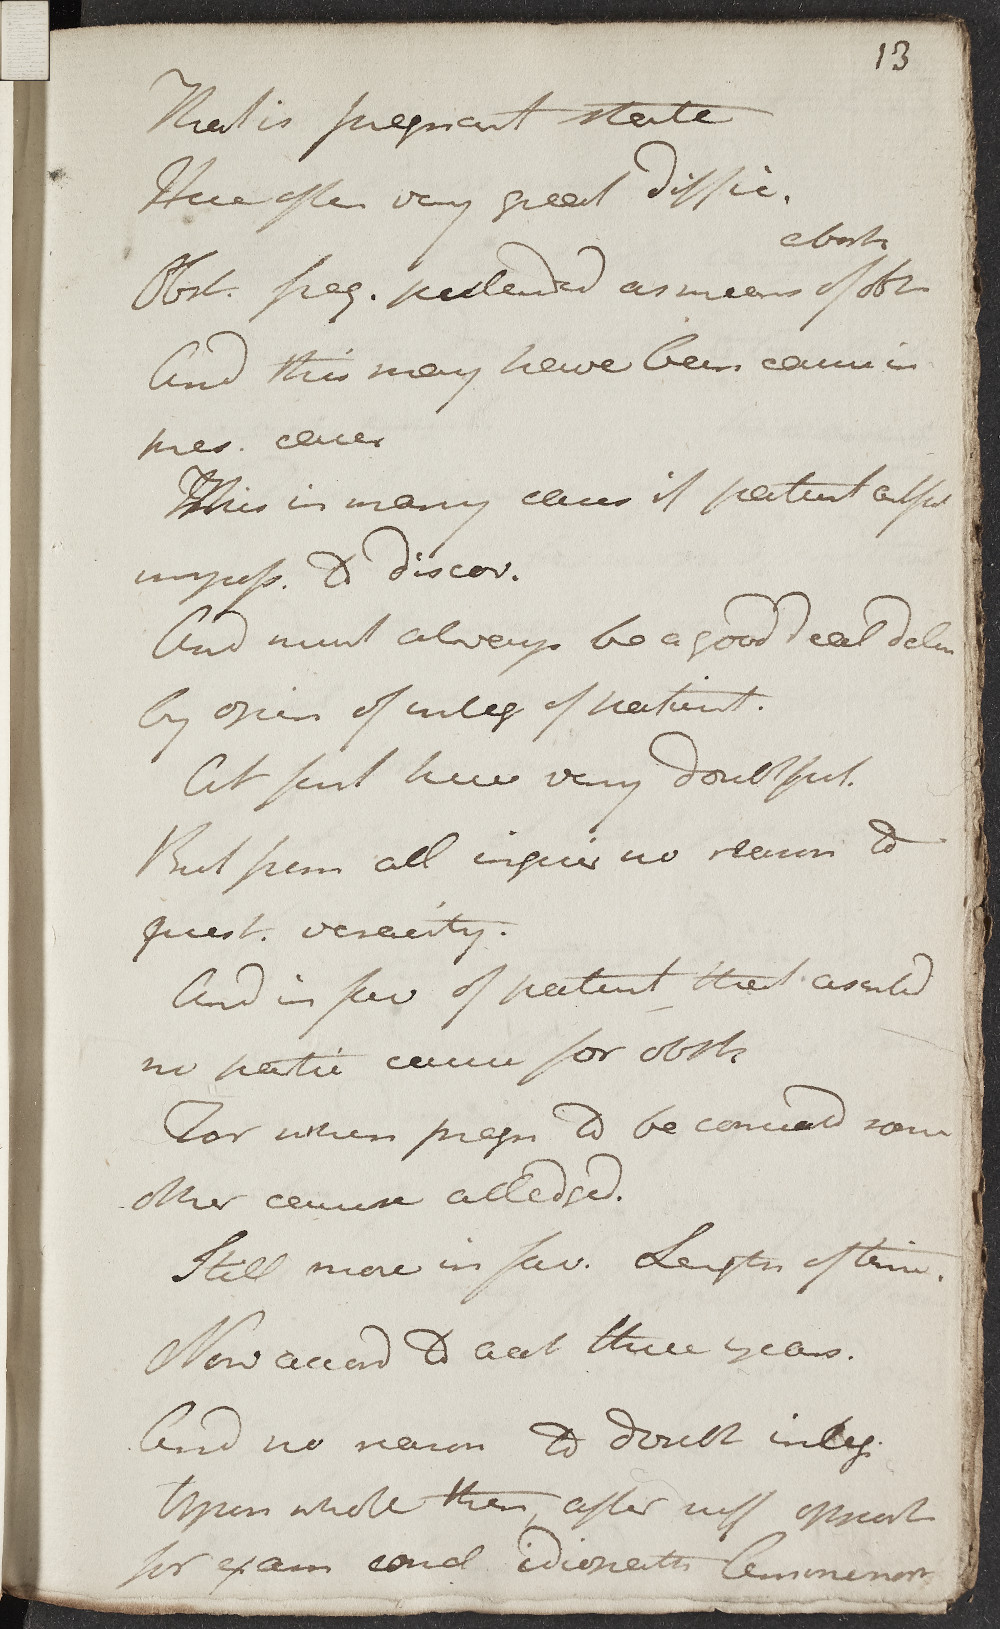 13
That is pregnant state
Here often very great Diffic.
abort.
Obst. preg. pretended as means of obt
And this may have been cause in
pres. case
This in many cases if patient artful
imposs. to discov.
And must always be a good deal deter
by opin of integ of patient.
At first here very doubtful.
But from all inquir no reason to
quest. veracity.
And in fav of patient that asserted
no partic cause for obstr
For when pregn to be conceald some
other cause alledged.
Still more in fav. Length of time.
Now accord to acct three years.
And no reason to doubt integ.
Upon whole then, after suff opport
for exam concl idiopathic Amenorr